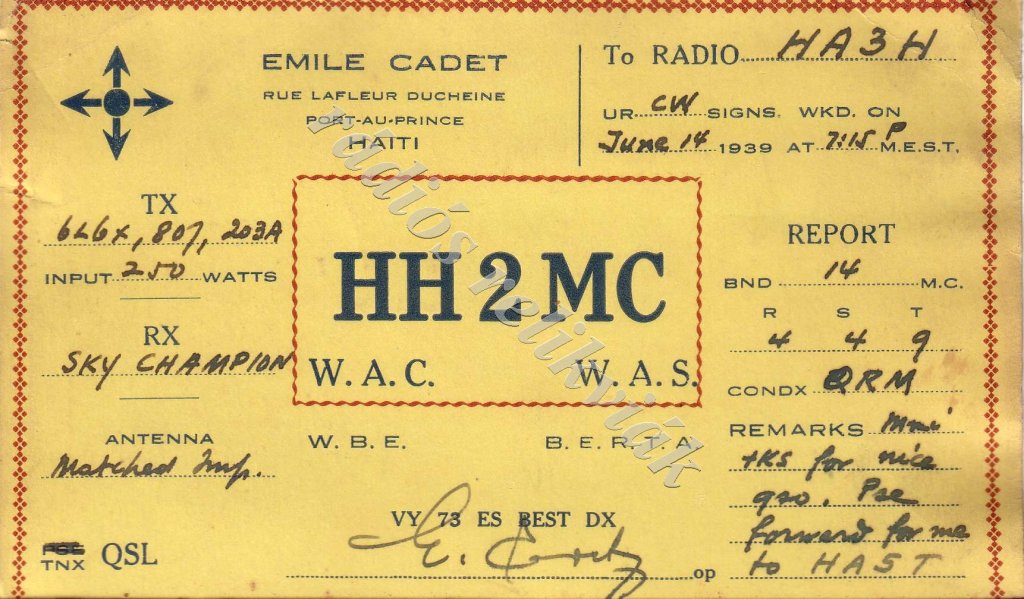 EMILE CADET
RUE LAFLEUR DUCHEINE
PORT-AU-PRINCE
HAITI
To RADIO HA3H
UR CW SIGNS. WKD. ON
June 14 1939 AT 7:15 P M.E.S.T.
TX
6L6X, 807, 203A
INPUT 250 WATTS
RX
SKY CHAMPION
ANTENNA
Matched Imp.
PSE
TNX QSL
HH2MC
W.A.C. W.A.S.
W.B.E. B.E.R.T.A.
VY 73 ES BEST DX
E. op
REPORT
BND 14 M.C.
R S T
4 4 9
CONDX QRM
REMARKS Mni
tks for nice
qso. Pse
forward for me
to HA5T
rádiós relikviák